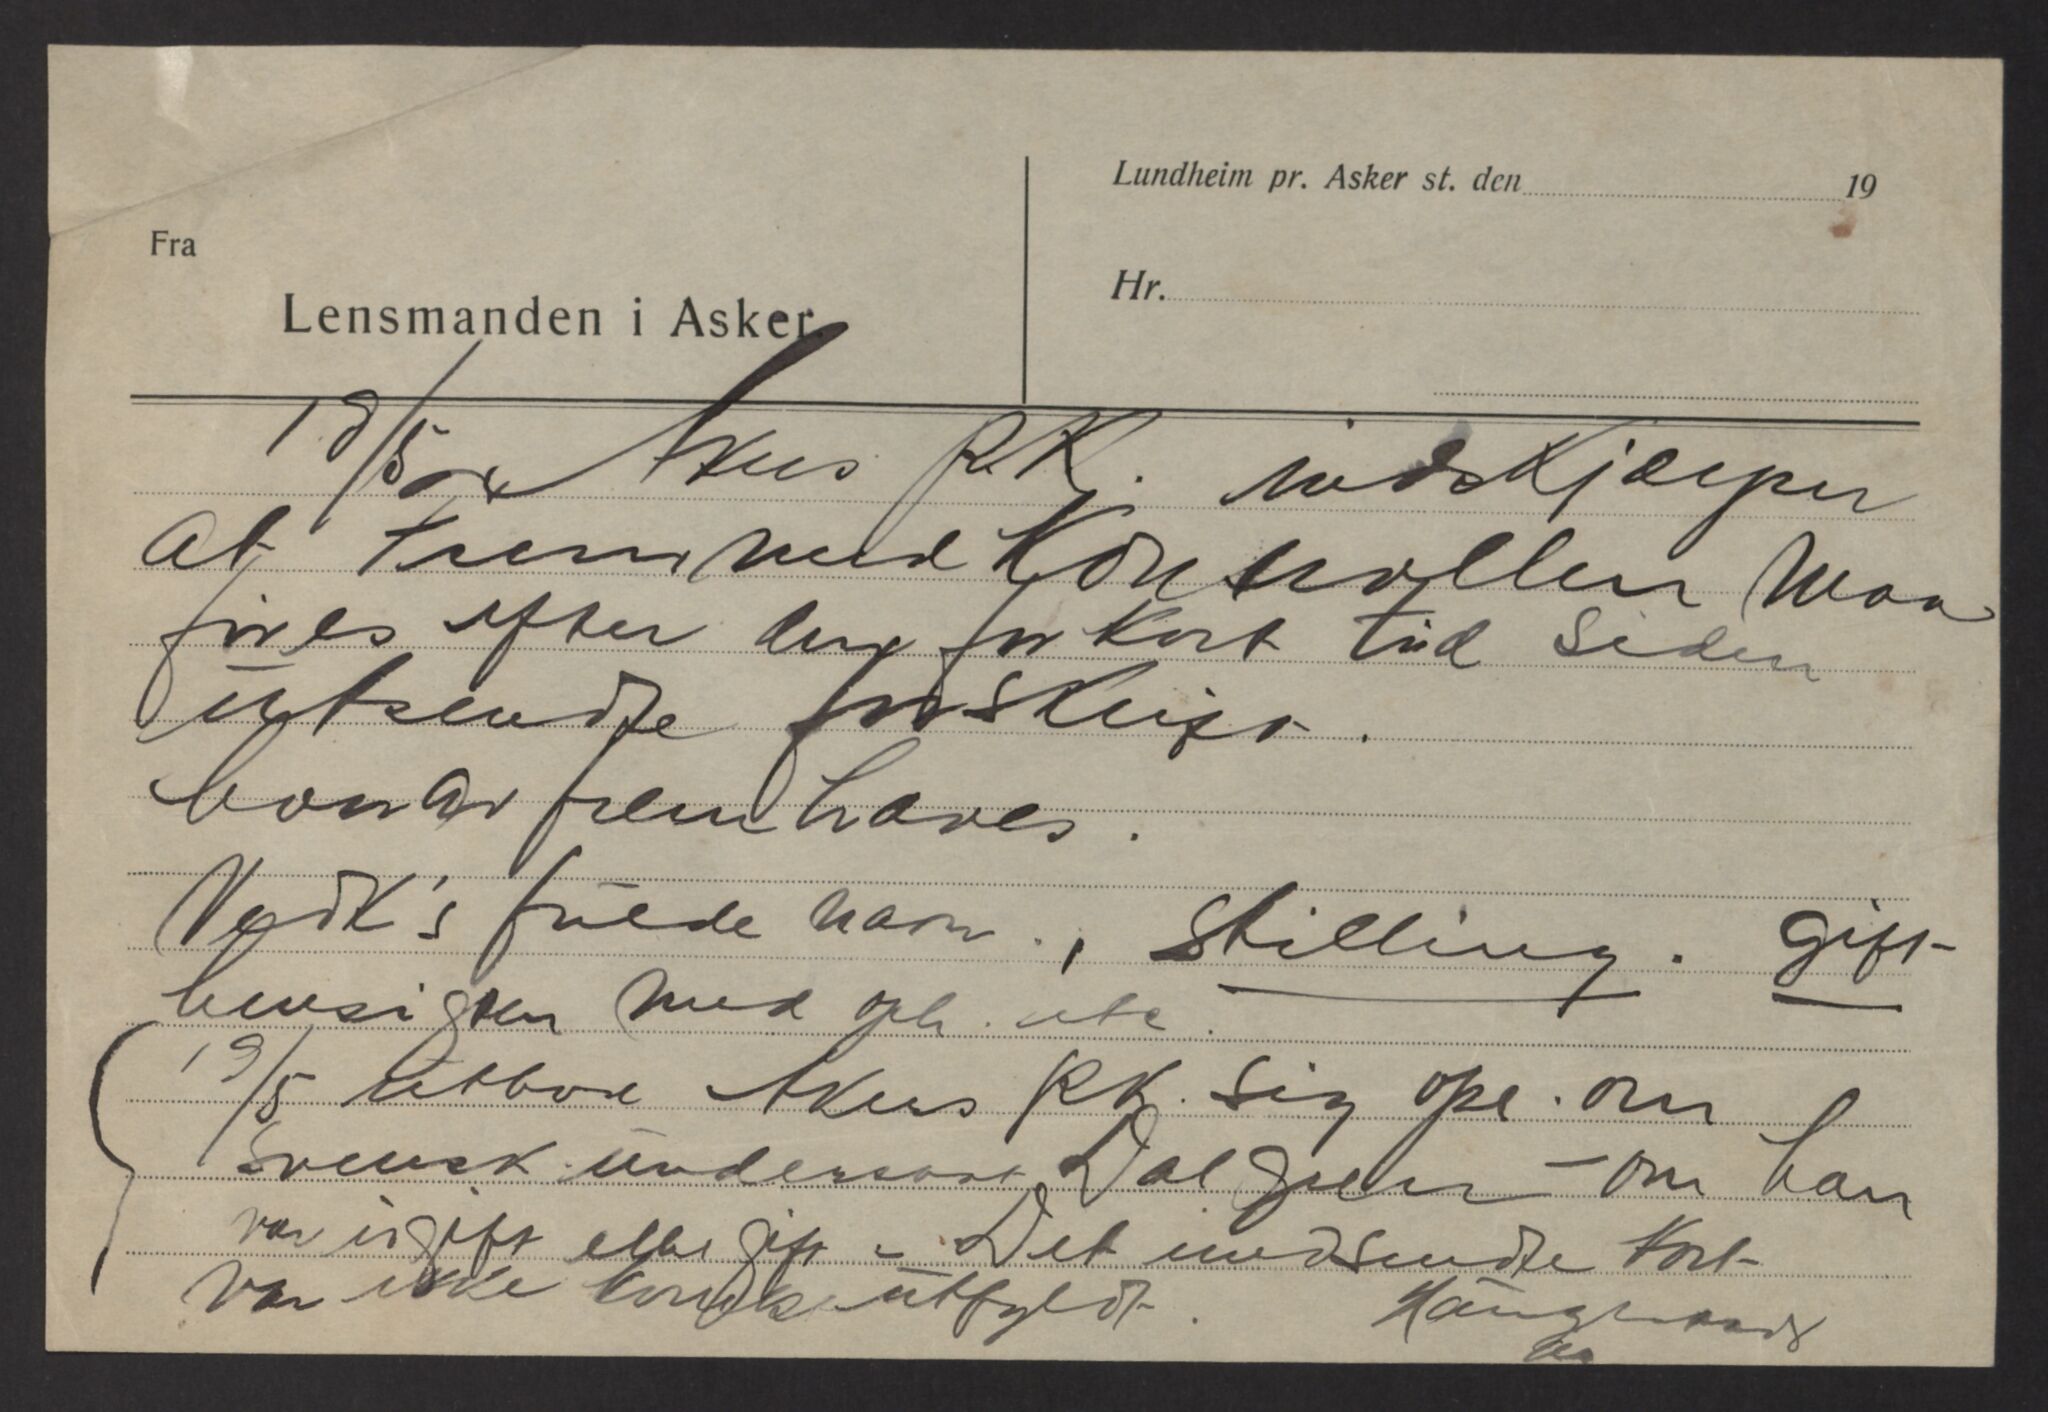 Fra
Lensmanden i Asker.
Lundheim pr. Asker st. den 19
Hr.
19/5 Akers P.K. indskjærper
at Fremmedkontrollen maa
føres efter den for kort tid siden
utsendte forskrift.
fremhæves.
Vedk's fulde navn, stilling. gift-
med opl. etc.
19/5 utbad Akers P.K. sig opl. om
Svensk undersaat Dalgren – om han
var ugift eller gift – Det indsendte kort
var ikke korrekt utfyldt.